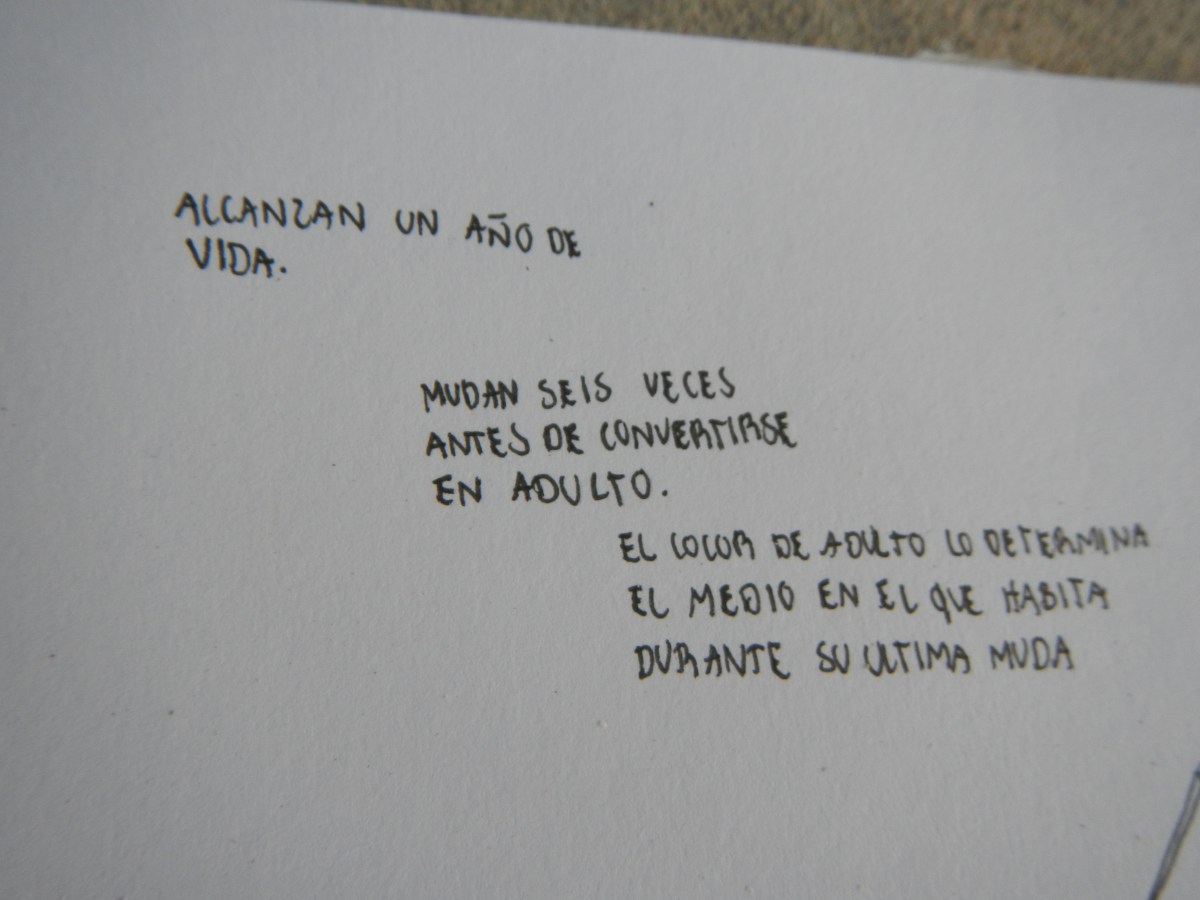 ALCANZAN UN AÑO DE
VIDA.
MUDAN SEIS VECES
ANTES DE CONVERTIRSE
EN ADULTO.
EL COLOR DE ADULTO LO DETERMINA
EL MEDIO EN EL QUE HABITA
DURANTE SU ULTIMA MUDA